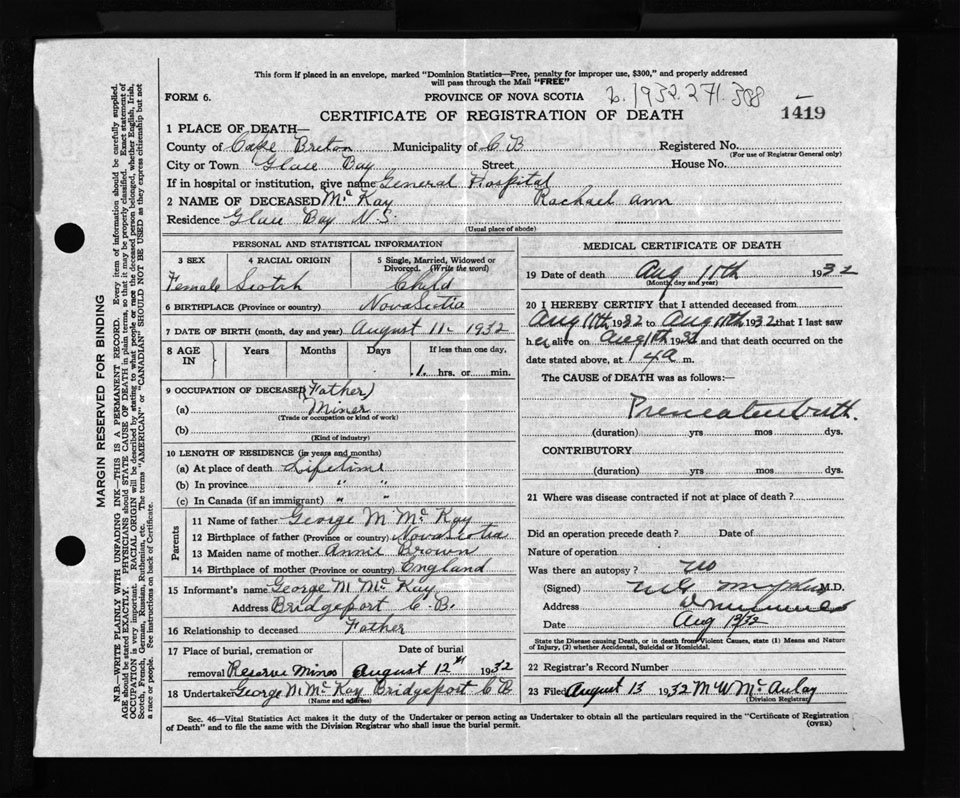 This form if placed in an envelope, marked "Dominion Statistics—Free, penalty for improper use, $300," and properly addressed
will pass through the Mail "FREE"
FORM 6.
PROVINCE OF NOVA SCOTIA
1932.271.388
CERTIFICATE OF REGISTRATION OF DEATH
1419
1 PLACE OF DEATH—
County of Cape Breton Municipality of C B Registered No.
(For use of Registrar General only)
City or Town Glace Bay Street House No.
If in hospital or institution, give name General Hospital
2 NAME OF DECEASED Mc Kay Rachael Ann
Residence Glace Bay N.S.
(Usual place of abode)
PERSONAL AND STATISTICAL INFORMATION
3 SEX 4 RACIAL ORIGIN 5 Single, Married, Widowed or
Divorced. (Write the word)
Female Scotch Child
6 BIRTHPLACE (Province or country) Nova Scotia
7 DATE OF BIRTH (month, day and year) August 11 1932
8 AGE IN Years Months Days If less than one day,
1 hrs. or min.
9 OCCUPATION OF DECEASED (Father)
(a) Miner
(Trade or occupation or kind of work)
(b)
(Kind of industry)
10 LENGTH OF RESIDENCE (in years and months)
(a) At place of death Lifetime
(b) In province " "
(c) In Canada (if an immigrant) " "
Parents
11 Name of father George M Mc Kay
12 Birthplace of father (Province or country) Nova Scotia
13 Maiden name of mother Annie Brown
14 Birthplace of mother (Province or country) England
15 Informant's name George M Mc Kay
Address Bridgeport C.B.
16 Relationship to deceased Father
17 Place of burial, cremation or Date of burial
removal Reserve Mines August 12th 1932
18 Undertaker George M Mc Kay Bridgeport C B
(Name and address)
MEDICAL CERTIFICATE OF DEATH
19 Date of death Aug 11th 1932
(Month, day and year)
20 I HEREBY CERTIFY that I attended deceased from
Aug 11th 1932 to Aug 11th 1932 that I last saw
h er alive on Aug 11th 1932 and that death occurred on the
date stated above, at m.
The CAUSE of DEATH was as follows:—
birth.
(duration) yrs mos dys.
CONTRIBUTORY
(duration) yrs mos dys.
21 Where was disease contracted if not at place of death?
Did an operation precede death? Date of
Nature of operation
Was there an autopsy? No
(Signed) M.D.
Address
Date Aug 1932
State the Disease causing Death, or in death from Violent Causes, state (1) Means and Nature
of Injury, (2) whether Accidental, Suicidal or Homicidal.
22 Registrar's Record Number
23 Filed August 13 1932 M W Mc Aulay
(Division Registrar)
Sec. 46—Vital Statistics Act makes it the duty of the Undertaker or person acting as Undertaker to obtain all the particulars required in the "Certificate of Registration
of Death" and to file the same with the Division Registrar who shall issue the burial permit.
(OVER)
MARGIN RESERVED FOR BINDING
N.B.—WRITE PLAINLY WITH UNFADING INK—THIS IS A PERMANENT RECORD. Every item of information should be carefully supplied.
AGE should be stated EXACTLY. PHYSICIANS should STATE CAUSE OF DEATH in plain terms, so that it may be properly classified. Exact statement of
OCCUPATION is very important. RACIAL ORIGIN will be described by stating to what people or race the deceased person belonged, whether English, Irish,
Scotch, French, German, Russian, Ruthenian, etc. The terms "AMERICAN" or "CANADIAN" SHOULD NOT BE USED as they express citizenship but not
a race or people. See instructions on back of Certificate.